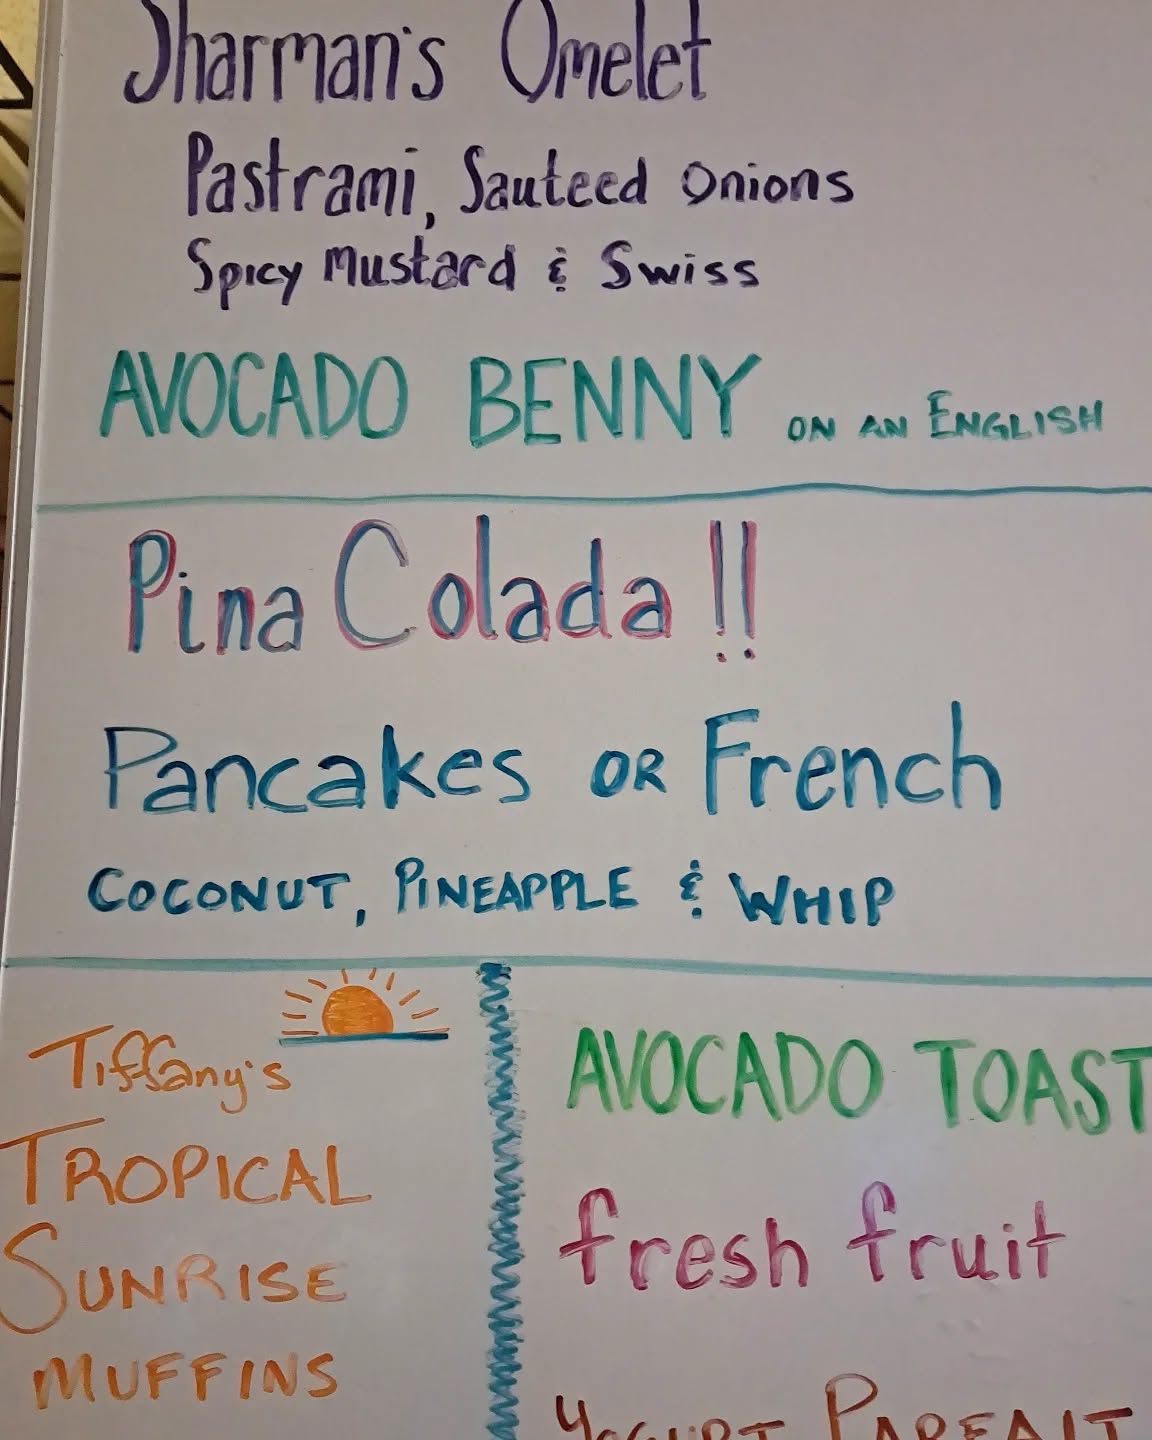 Sharman's Omelet
Pastrami, Sauteed Onions
Spicy Mustard & Swiss
AVOCADO BENNY ON AN ENGLISH
Pina Colada!!
Pancakes OR French
COCONUT, PINEAPPLE & WHIP
Tiffany's
TROPICAL
SUNRISE
MUFFINS
AVOCADO TOAST
fresh fruit
YOGURT PARFAIT